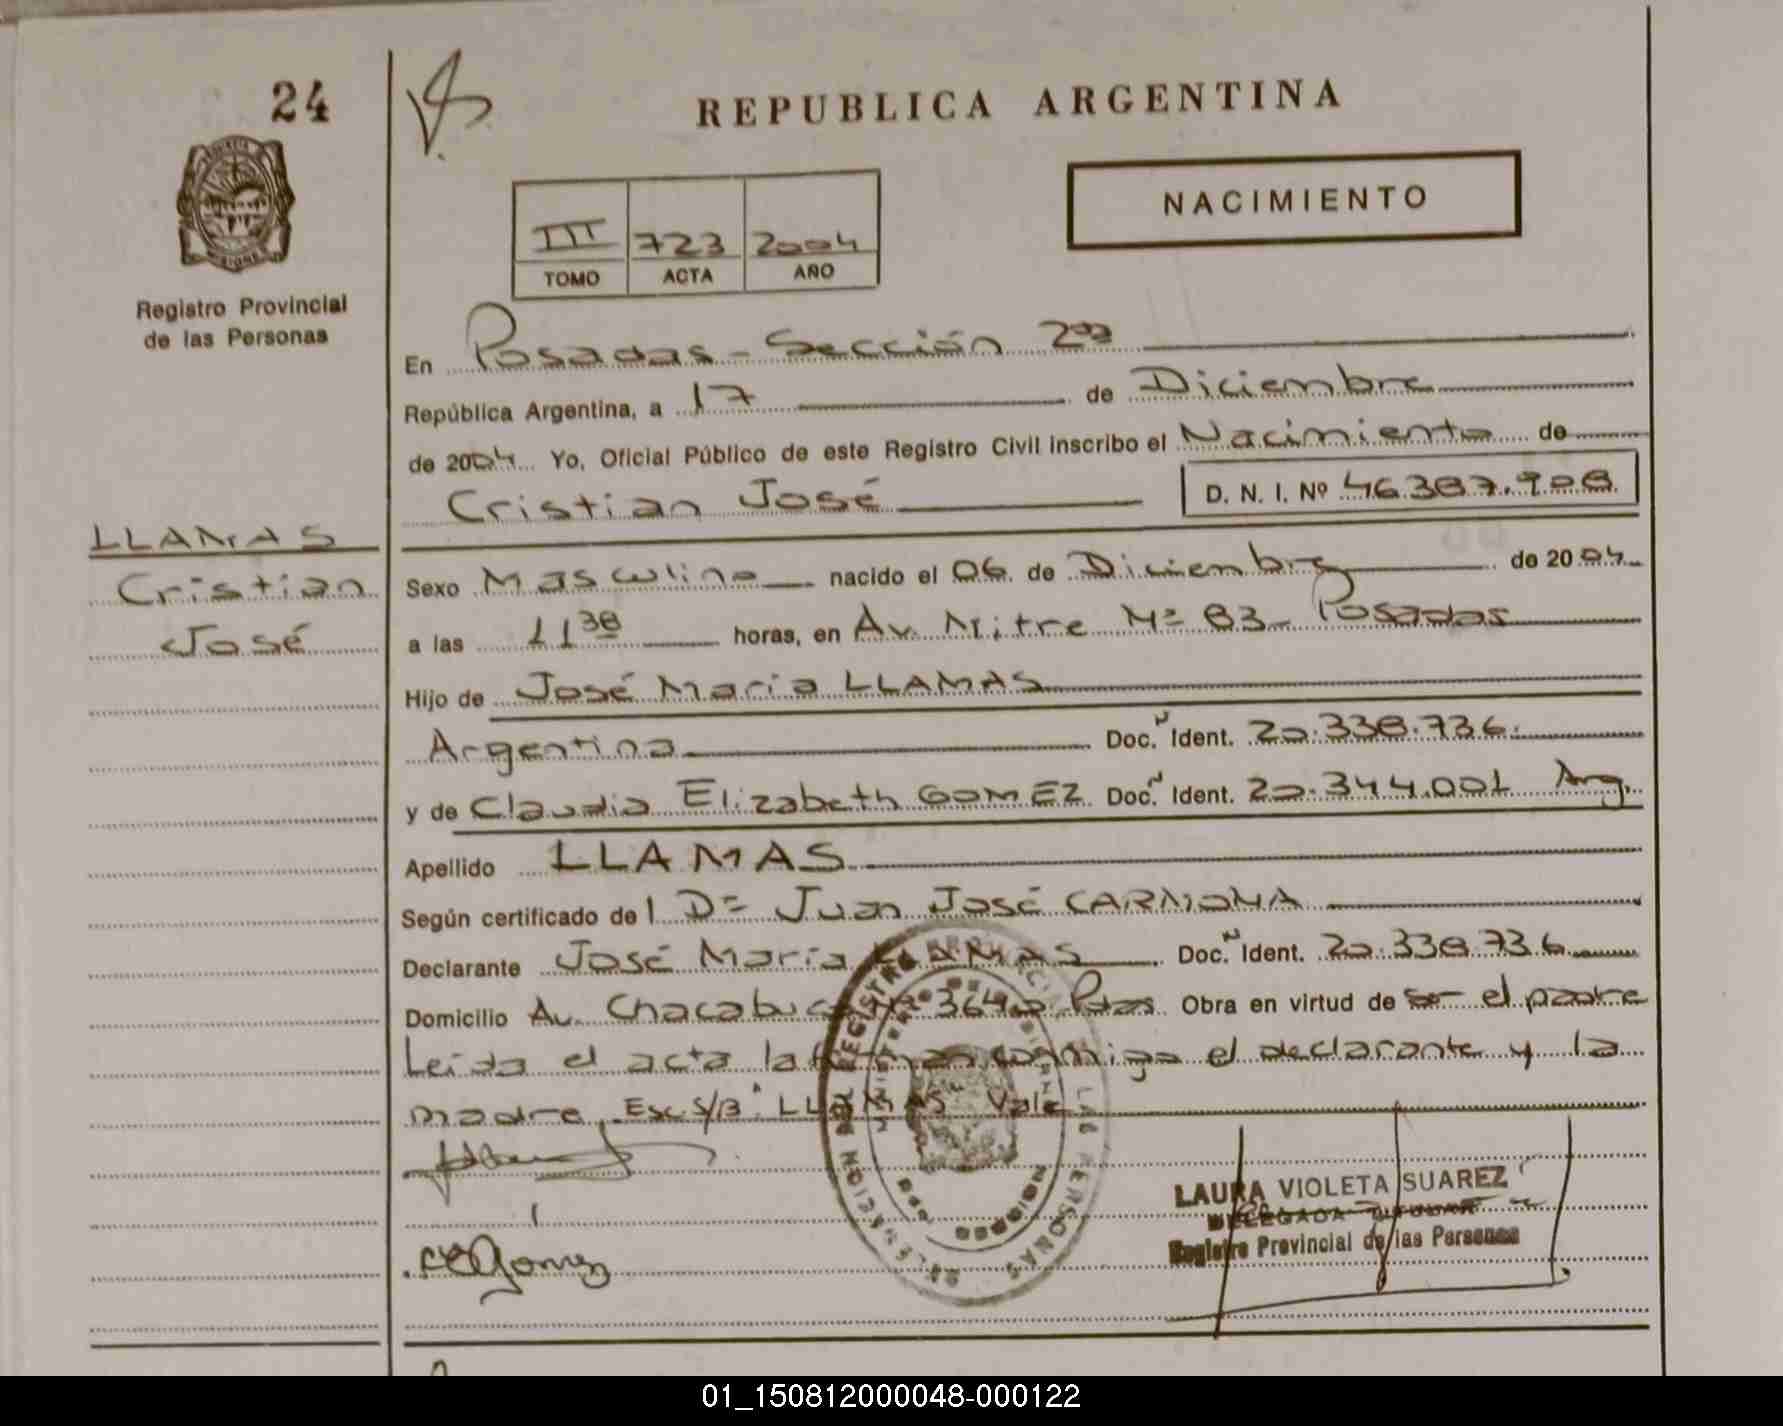 24
REPUBLICA ARGENTINA
NACIMIENTO
III 723 2004
TOMO ACTA AÑO
Registro Provincial
de las Personas
En Posadas - Sección 2da
República Argentina, a 17 de Diciembre
de 2004 Yo, Oficial Público de este Registro Civil inscribo el Nacimiento de
Cristian José D. N. I. Nº 46.387.908
LLAMAS
Cristian
José
Sexo Masculino nacido el 06 de Diciembre de 2004
a las 11 38 horas, en Av. Mitre Nº 83 - Posadas
Hijo de José María LLAMAS
Argentino Doc. N Ident. 20.338.736
y de Claudia Elizabeth GOMEZ Doc. N Ident. 20.344.001 Arg.
Apellido LLAMAS
Según certificado del Dr Juan José CARMONA
Declarante José María LLAMAS Doc. N Ident. 20.338.736
Domicilio Av. Chacabuco Nº 3640 Pdas Obra en virtud de ser el padre
Leida el acta la firman conmigo el declarante y la
madre Esc. S/B "LLAMAS" Vale
LAURA VIOLETA SUAREZ
DELEGADA TITULAR
Registro Provincial de las Personas
01_150812000048-000122